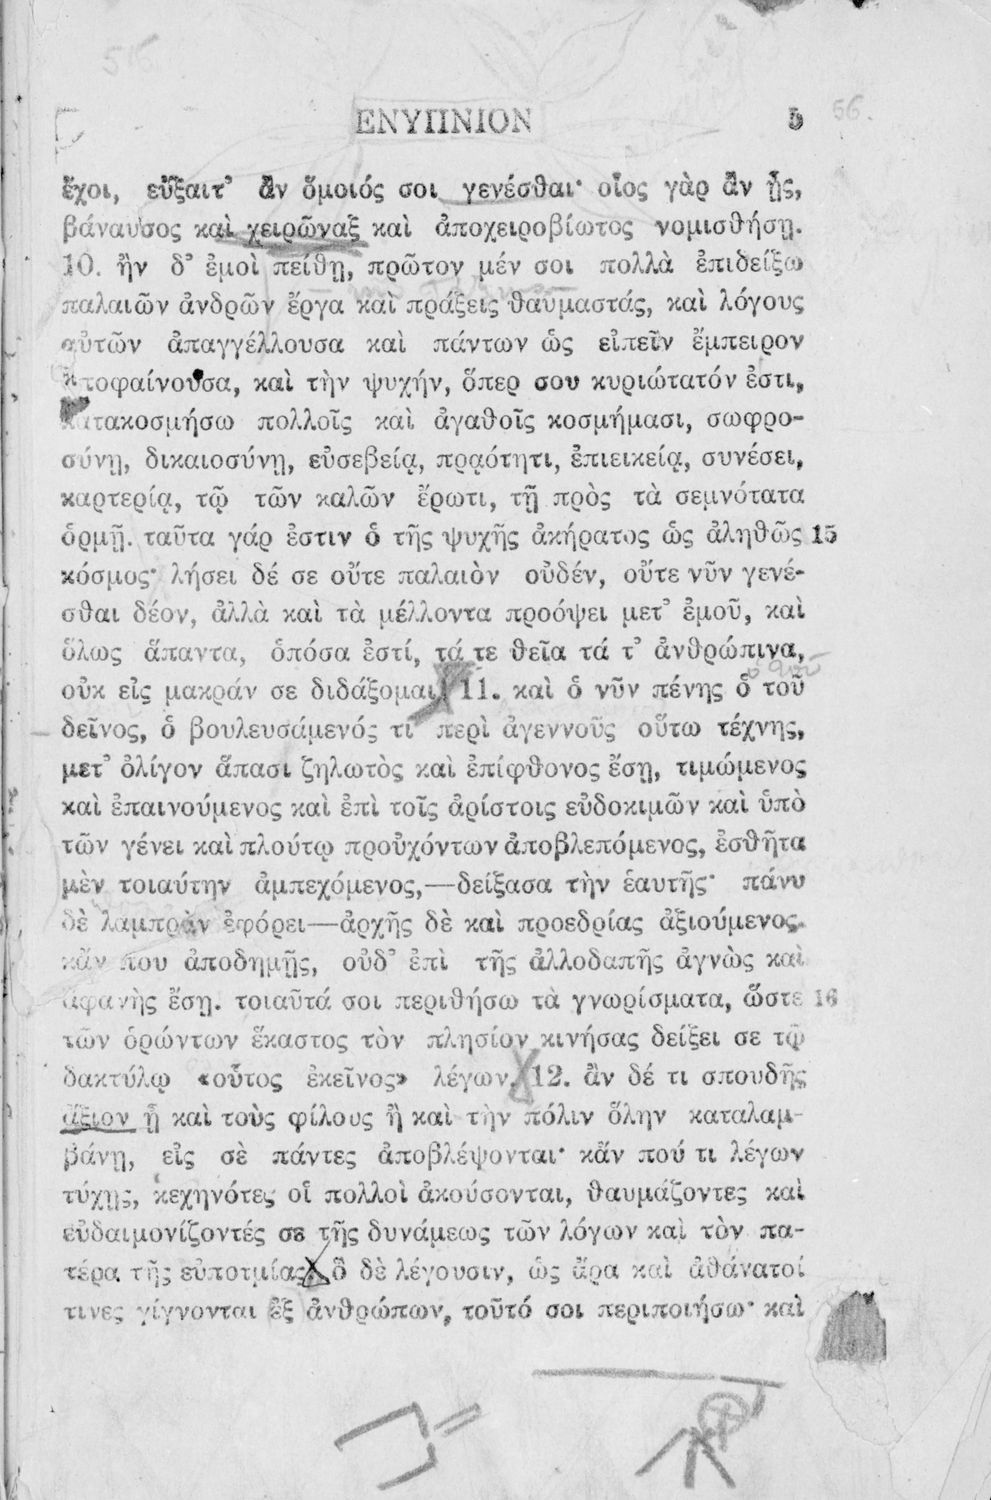 ΕΝΥΠΝΙΟΝ 5 56.
ἔχοι, εὔξαιτ’ ἂν ὅμοιός σοι γενέσθαι· οἷος γὰρ ἂν ᾖς,
βάναυσος καὶ χειρῶναξ καὶ ἀποχειροβίωτος νομισθήσῃ.
10. ἢν δ’ ἐμοὶ πείθῃ, πρῶτον μέν σοι πολλὰ ἐπιδείξω
παλαιῶν ἀνδρῶν ἔργα καὶ πράξεις θαυμαστάς, καὶ λόγους
αὐτῶν ἀπαγγέλλουσα καὶ πάντων ὡς εἰπεῖν ἔμπειρον
ἀποφαίνουσα, καὶ τὴν ψυχήν, ὅπερ σου κυριώτατόν ἐστι,
κατακοσμήσω πολλοῖς καὶ ἀγαθοῖς κοσμήμασι, σωφρο-
σύνῃ, δικαιοσύνῃ, εὐσεβείᾳ, πρᾳότητι, ἐπιεικείᾳ, συνέσει,
καρτερίᾳ, τῷ τῶν καλῶν ἔρωτι, τῇ πρὸς τὰ σεμνότατα
ὁρμῇ. ταῦτα γάρ ἐστιν ὁ τῆς ψυχῆς ἀκήρατος ὡς ἀληθῶς 15
κόσμος· λήσει δέ σε οὔτε παλαιὸν οὐδέν, οὔτε νῦν γενέ-
σθαι δέον, ἀλλὰ καὶ τὰ μέλλοντα προόψει μετ’ ἐμοῦ, καὶ
ὅλως ἅπαντα, ὁπόσα ἐστί, τά τε θεῖα τά τ’ ἀνθρώπινα,
οὐκ εἰς μακράν σε διδάξομαι. 11. καὶ ὁ νῦν πένης ὁ τοῦ
δεῖνος, ὁ βουλευσάμενός τι περὶ ἀγεννοῦς οὕτω τέχνης,
μετ’ ὀλίγον ἅπασι ζηλωτὸς καὶ ἐπίφθονος ἔσῃ, τιμώμενος
καὶ ἐπαινούμενος καὶ ἐπὶ τοῖς ἀρίστοις εὐδοκιμῶν καὶ ὑπὸ
τῶν γένει καὶ πλούτῳ προὐχόντων ἀποβλεπόμενος, ἐσθῆτα
μὲν τοιαύτην ἀμπεχόμενος,—δείξασα τὴν ἑαυτῆς· πάνυ
δὲ λαμπρὰν ἐφόρει—ἀρχῆς δὲ καὶ προεδρίας ἀξιούμενος.
κἄν που ἀποδημῇς, οὐδ’ ἐπὶ τῆς ἀλλοδαπῆς ἀγνὼς καὶ
ἀφανὴς ἔσῃ. τοιαῦτά σοι περιθήσω τὰ γνωρίσματα, ὥστε 16
τῶν ὁρώντων ἕκαστος τὸν πλησίον κινήσας δείξει σε τῷ
δακτύλῳ «οὗτος ἐκεῖνος» λέγων. 12. ἂν δέ τι σπουδῆς
ἄξιον ᾖ καὶ τοὺς φίλους ἢ καὶ τὴν πόλιν ὅλην καταλαμ-
βάνῃ, εἰς σὲ πάντες ἀποβλέψονται· κἄν πού τι λέγων
τύχῃς, κεχηνότες οἱ πολλοὶ ἀκούσονται, θαυμάζοντες καὶ
εὐδαιμονίζοντές σε τῆς δυνάμεως τῶν λόγων καὶ τὸν πα-
τέρα τῆς εὐποτμίας. ὃ δὲ λέγουσιν, ὡς ἄρα καὶ ἀθάνατοί
τινες γίγνονται ἐξ ἀνθρώπων, τοῦτό σοι περιποιήσω· καὶ